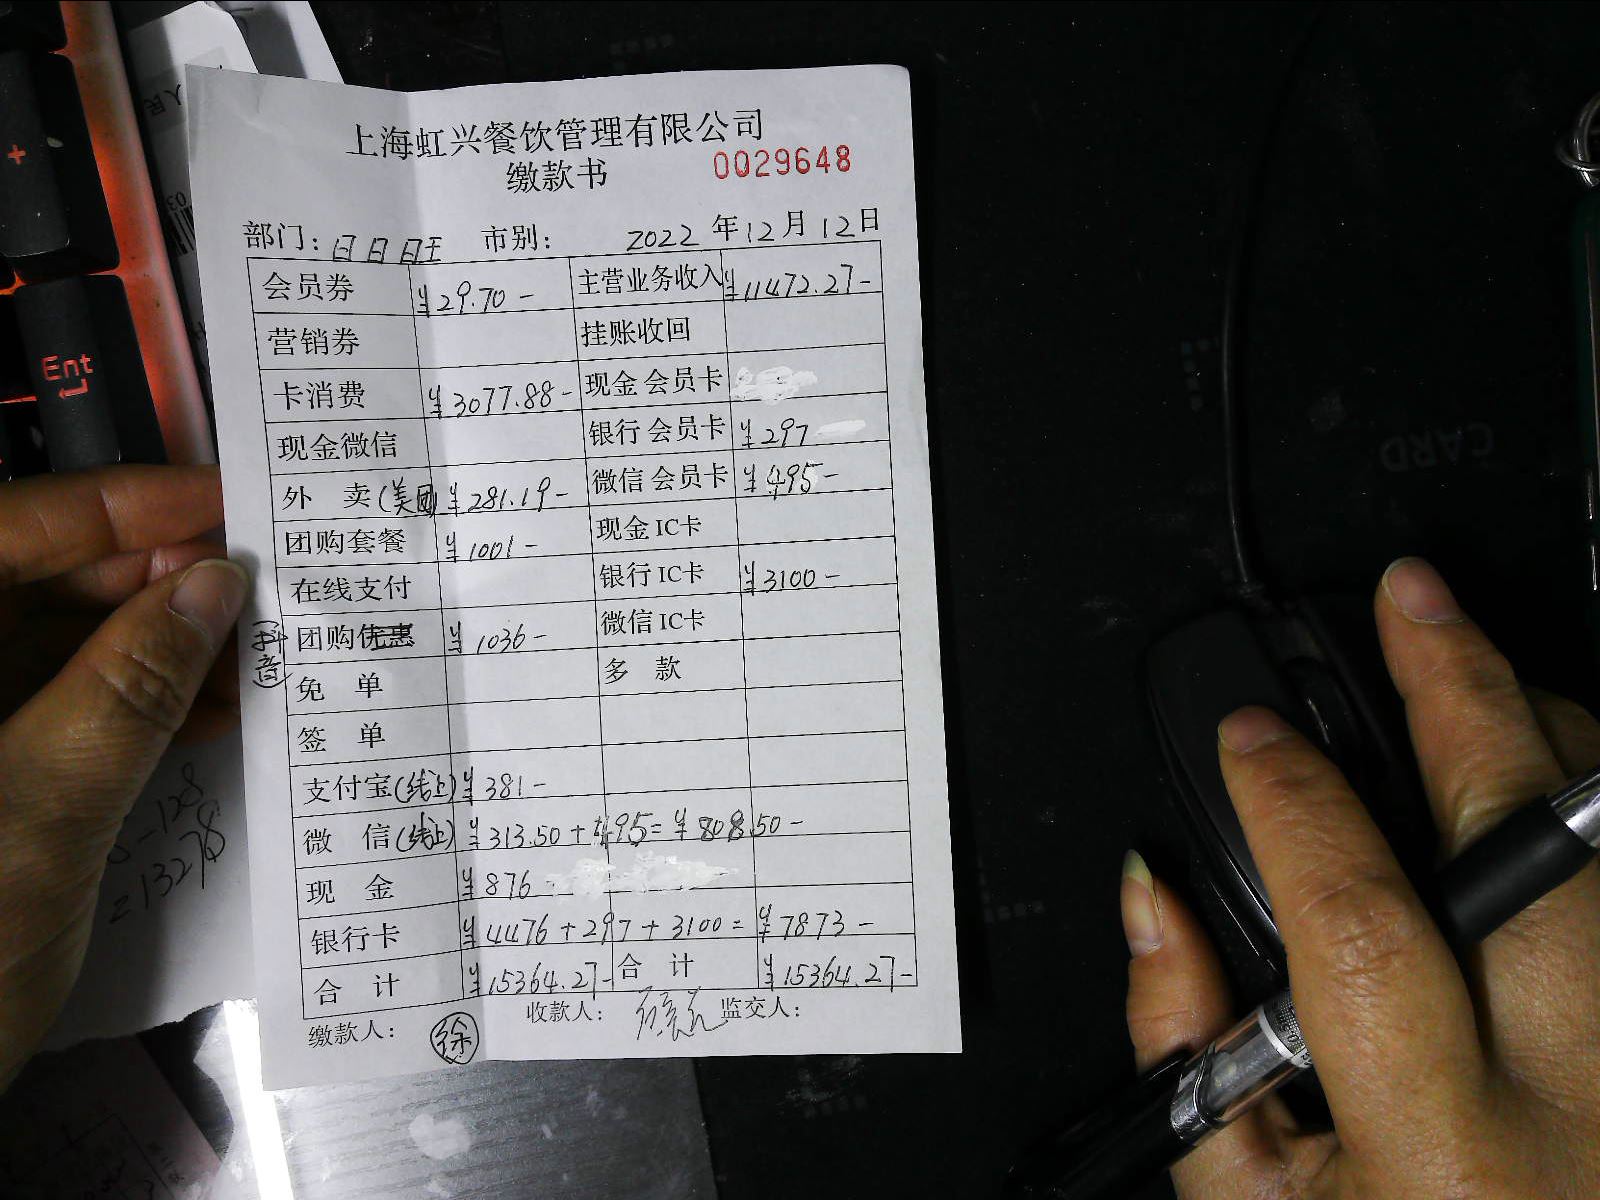 上海虹兴餐饮管理有限公司
缴款书 0029648
部门: 日日日旺 市别: 2022 年 12 月 12 日
会员券 ¥29.70- 主营业务收入 ¥11472.27-
营销券 挂账收回
卡消费 ¥3077.88- 现金会员卡
现金微信 银行会员卡 ¥297
外 卖(美团) ¥281.19- 微信会员卡 ¥495-
团购套餐 ¥1001- 现金IC卡
在线支付 银行IC卡 ¥3100-
(抖音) 团购优惠 ¥1036- 微信IC卡
免 单 多 款
签 单
支付宝(线上) ¥381-
微 信(线上) ¥313.50+495=¥808.50-
现 金 ¥876-
银行卡 ¥4476+297+3100=¥7873-
合 计 ¥15364.27- 合 计 ¥15364.27-
缴款人: 徐 收款人: 监交人:
Ent
+
CARD
-128
=13278
人民
03